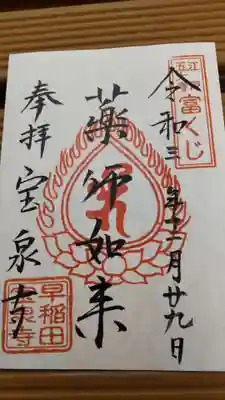 江戸
富くじ
令和三年十二月廿九日
薬师如来
奉拝
宝泉寺
早稲田
宝泉寺